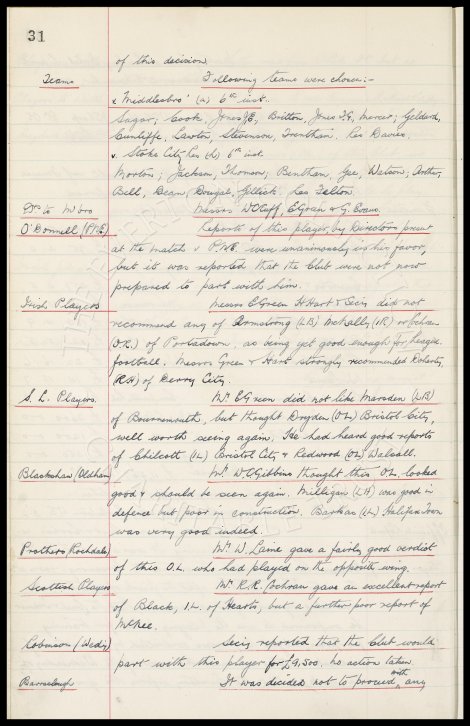 31
of this decision.
Teams Following teams were chosen:-
v Middlesbro' (a) 6th inst.
Sagar; Cook, Jones J.E., Britton, Jones T.G., Mercer; Geldard,
Cunliffe, Lawton, Stevenson, Trentham. Res Davies.
v. Stoke City Res (h) 6th inst.
Morton; Jackson, Thomson; Bentham, Gee, Watson; Arthur,
Bell, Dean, Dougal, Gillick. Res Felton.
Drs to M'bro Messrs W.C. Cuff, E. Green & G. Evans.
O'Donnell (P.N.E.) Reports of this player by Directors present
at the match v P.N.E. were unanimously in his favor,
but it was reported that the Club were not now
prepared to part with him.
Irish Players Messrs E Green H Hart & Secy did not
recommend any of Armstrong (L.B.) McNally (I.R.) or Cochrane
(O.R.) of Portadown, as being yet good enough for league
football. Messrs Green & Hart strongly recommended Doherty,
(R.H) of Derry City.
S. L. Players. Mr. E Green did not like Marsden (L.B)
of Bournemouth, but thought Drysden (O.L) Bristol City,
well worth seeing again. He had heard good reports
of Chilcott (I.L) Bristol City & Redwood (O.L) Walsall.
Blackshaw (Oldham) Mr. W C Gibbins thought this O.L. looked
good & should be seen again. Milligan (L.H) was good in
defence but poor in construction. Barkas (I.L.) Halifax Town
was very good indeed.
Prothers (Rochdale) Mr. W. Laine gave a fairly good verdict
of this O.L. who had played on the opposite wing.
Scottish Players Mr. R.R. Cochran gave an excellent report
of Black, I.L. of Hearts, but a further poor report of
McKee.
Robinson (Wedy) Secy reported that the Club would
part with this player for £9,500. No action taken
Barraclough It was decided not to proceed with any